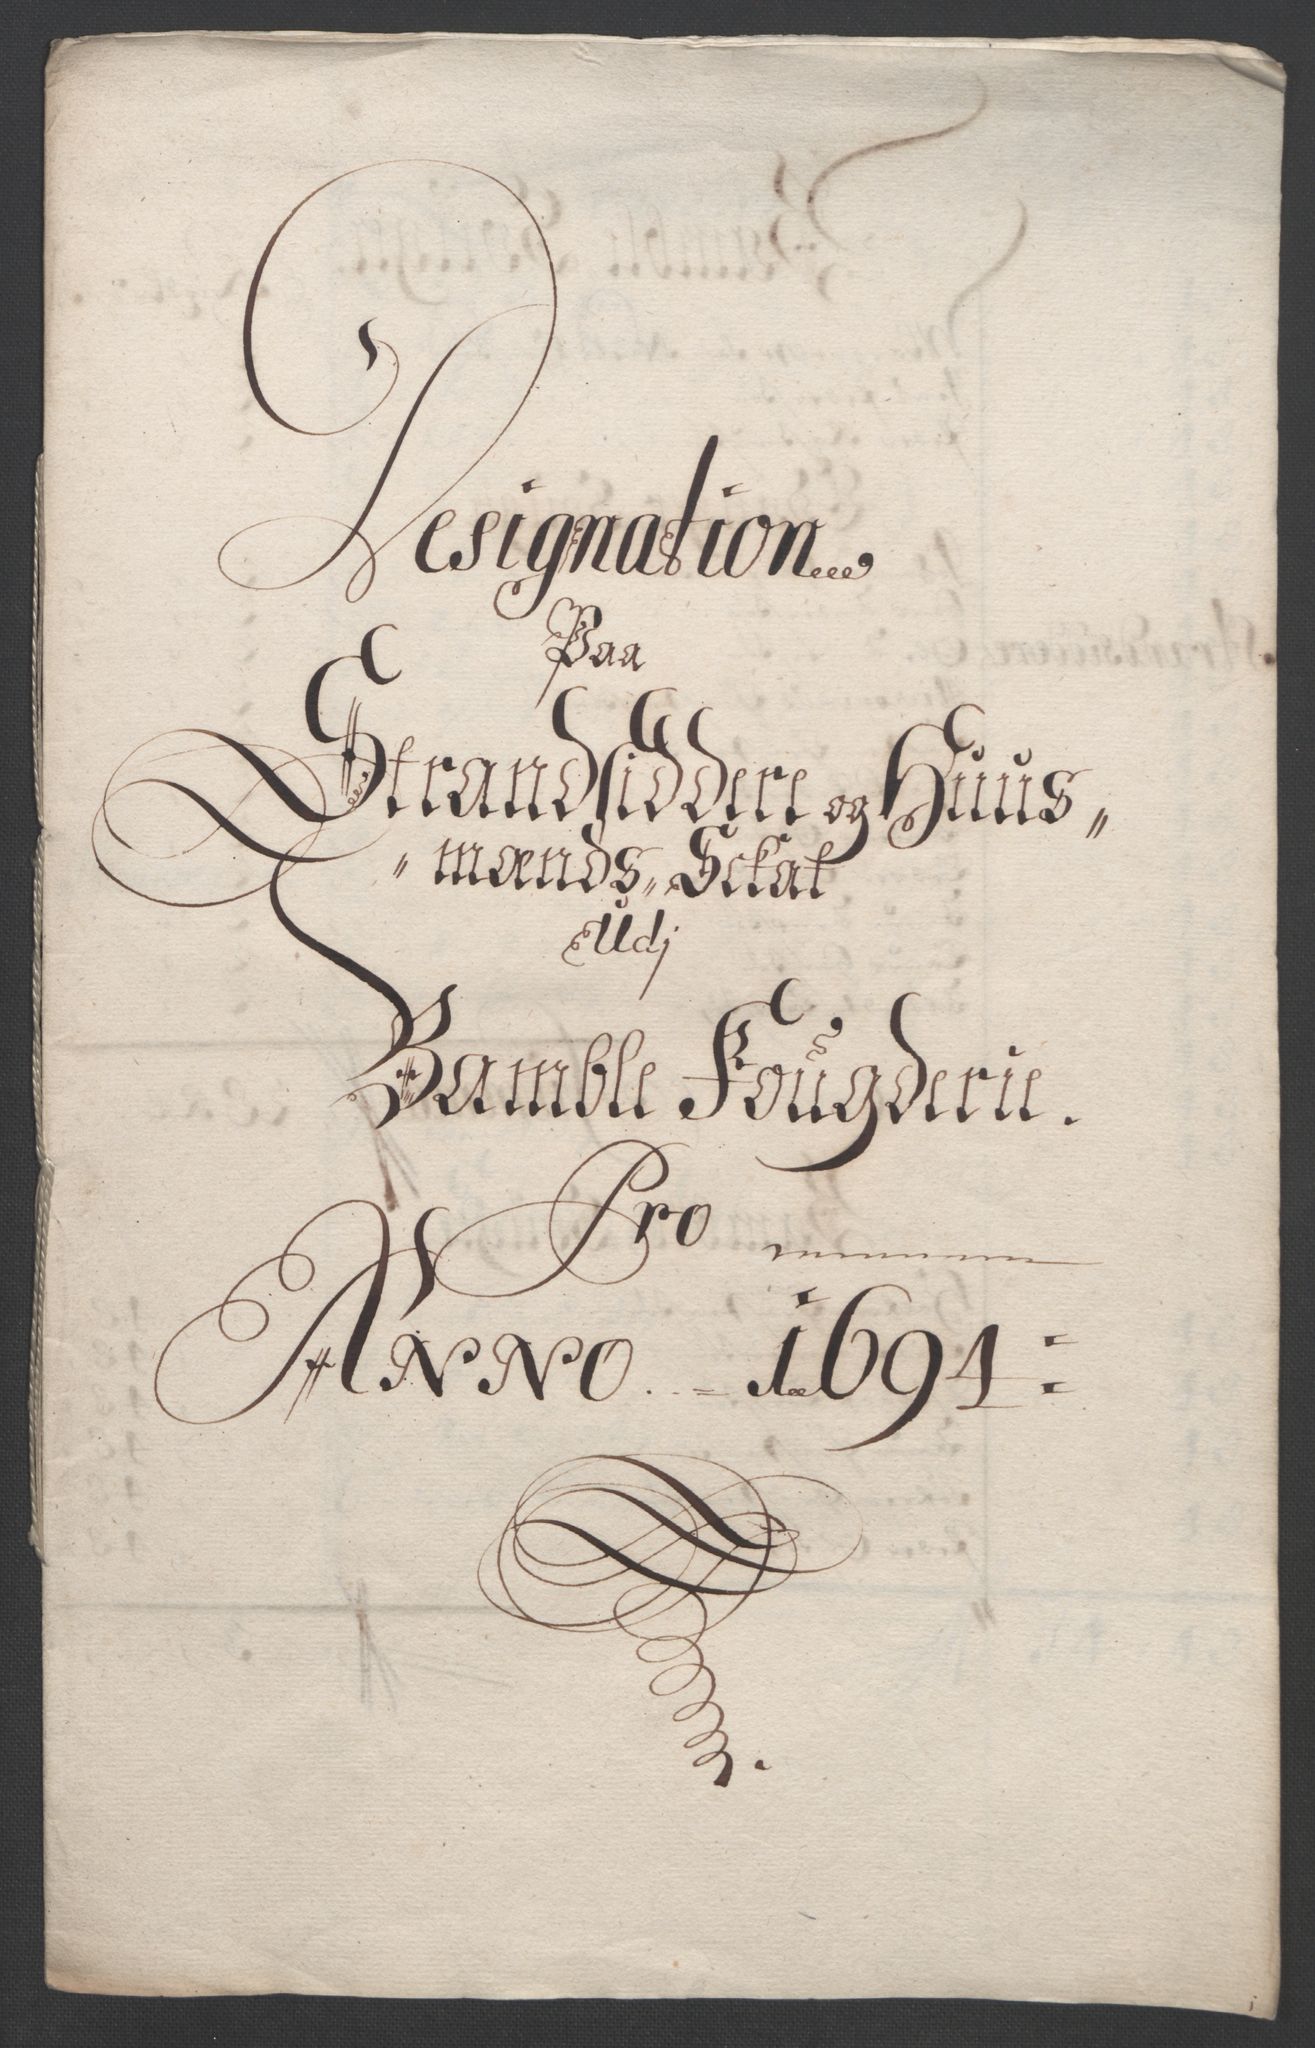 Designation
Paa
Strandsiddere og Huus„
„mænds„ Sckat
Udj
Bamble Fougderie.
Pro
ANNO 1694: